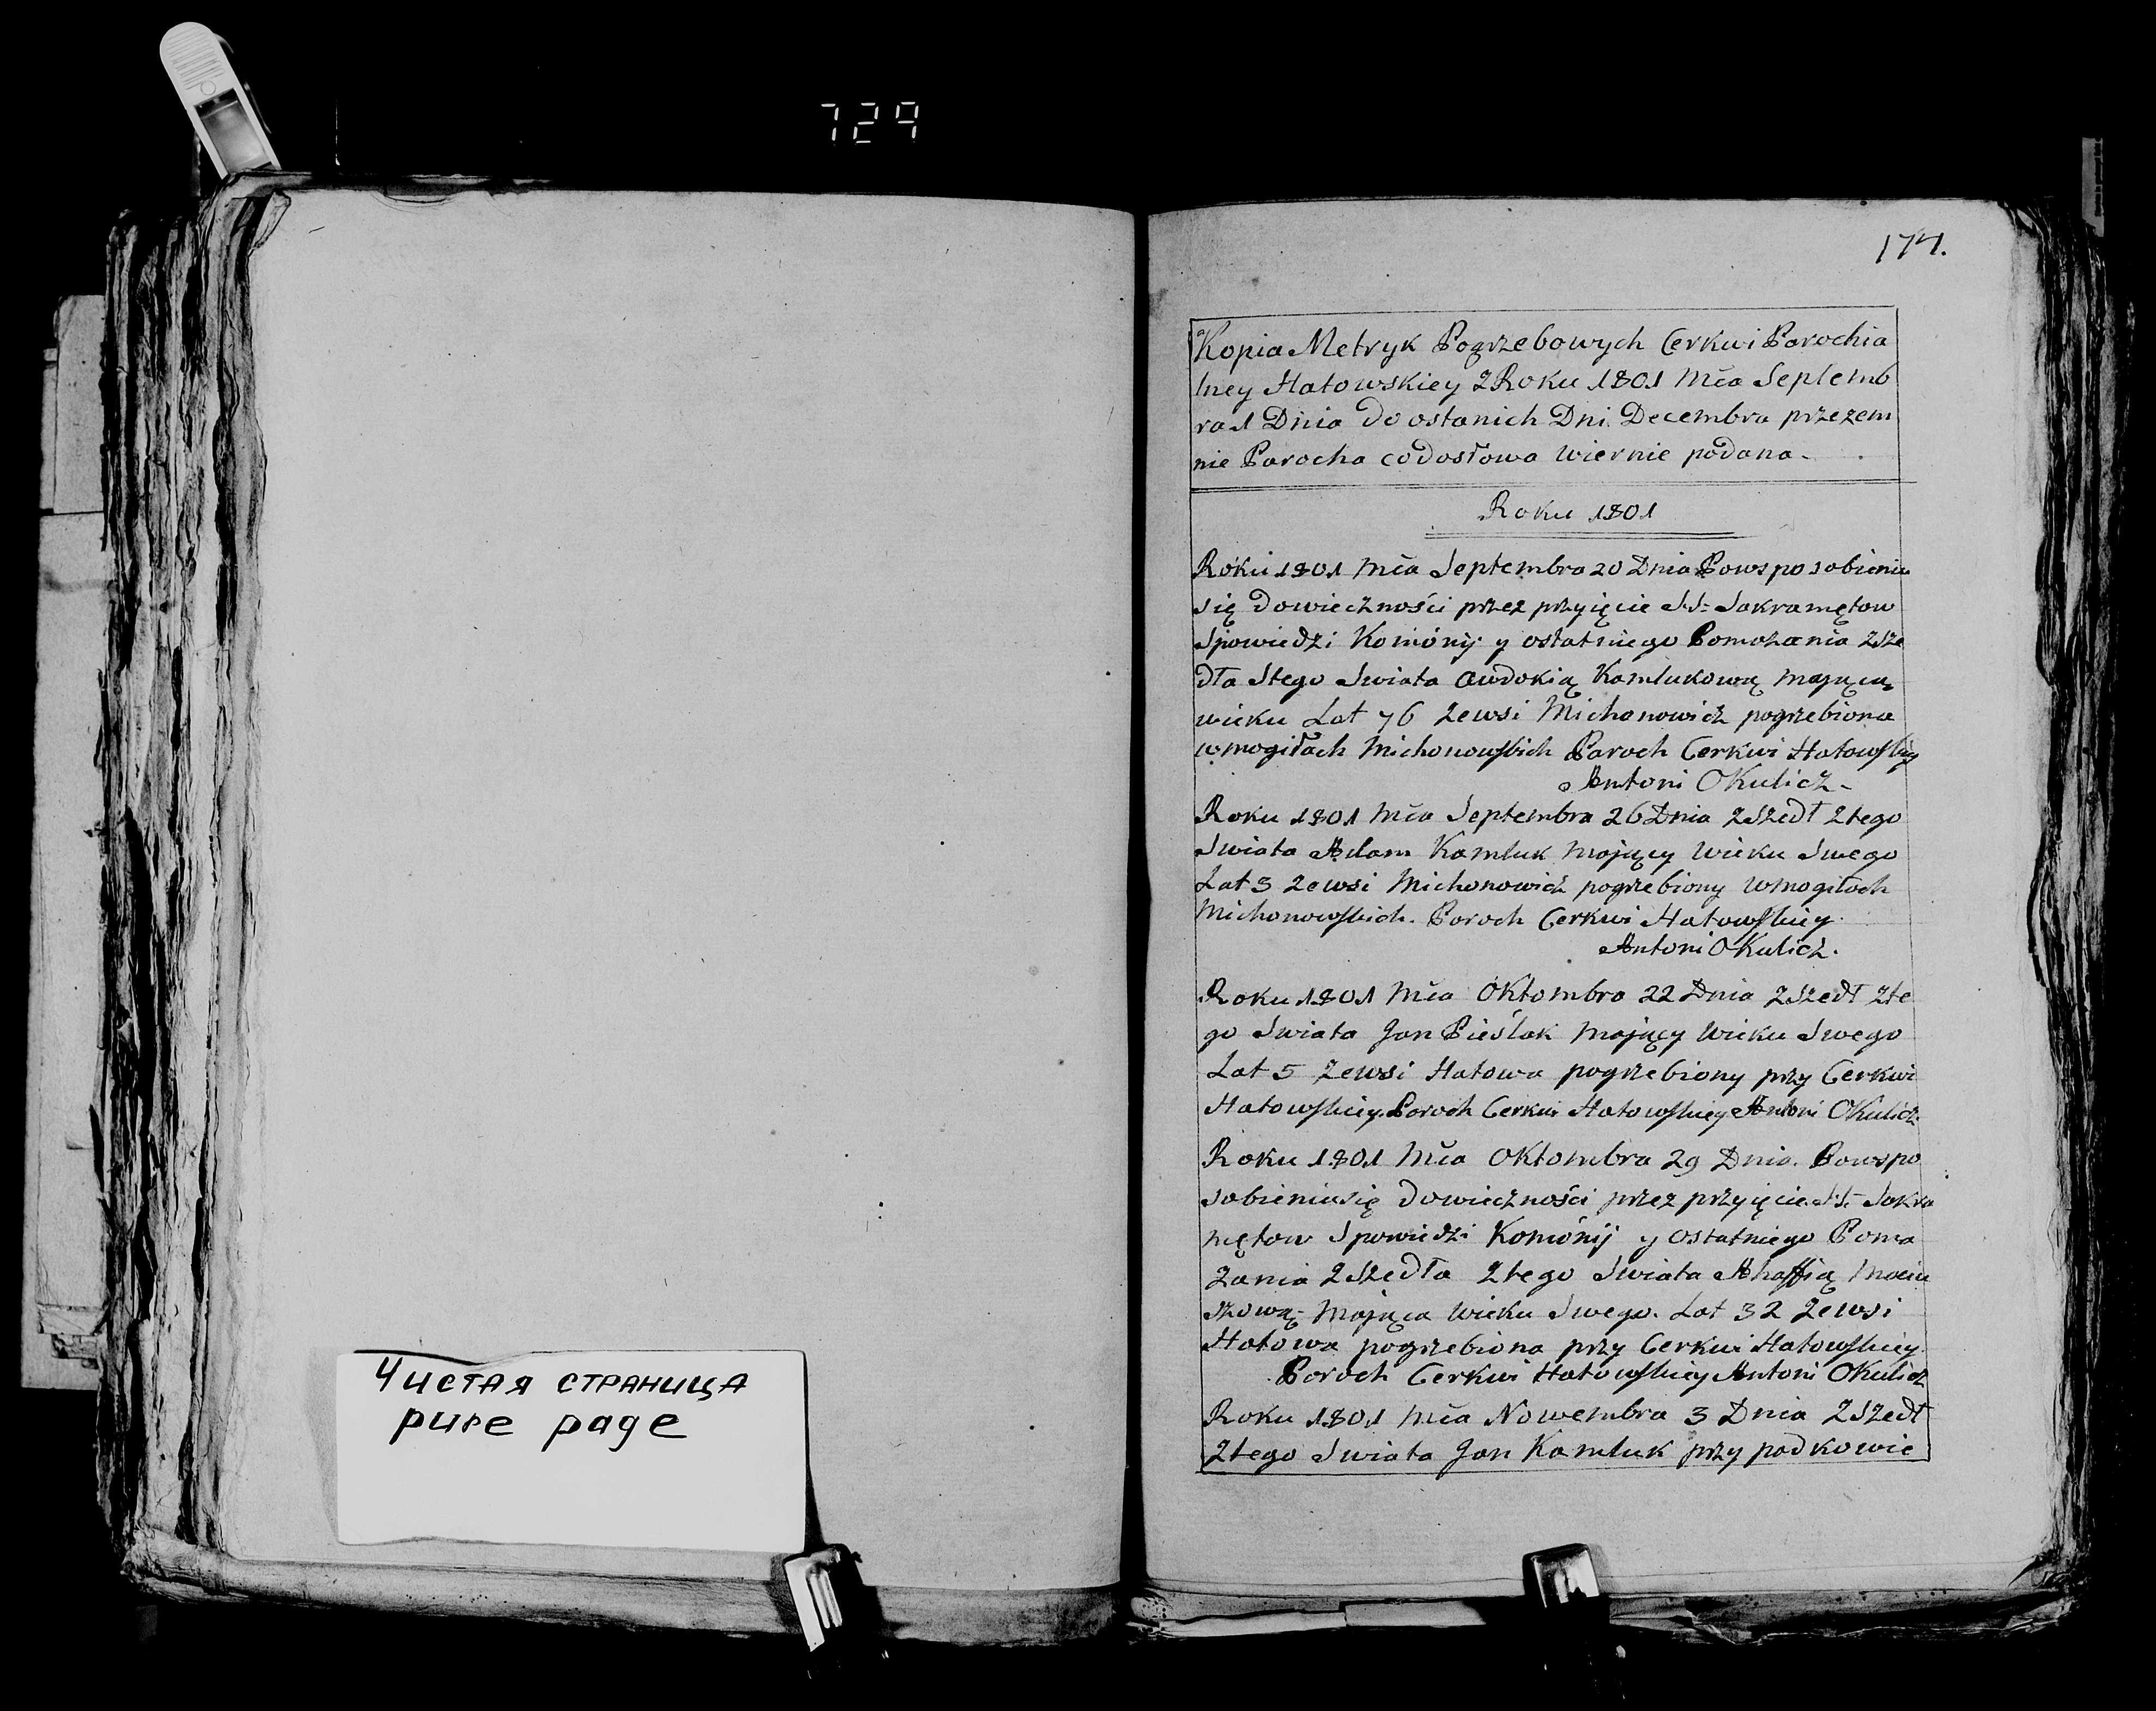 729
Чистая страница
pure page
174.
Kopia Metryk Pogrzebowych Cerkwi Parochia
lney Hatowskiey z Roku 1801 Mča Septemb
ra 1 Dnia do ostanich Dni Decembra przezem
nie Parocha co do słowa wiernie podana -
Roku 1801
Roku 1801 Mča Septembra 20 Dnia Po wsposobieniu
się do wieczności przez przyięcie S.S. Sakramętow
Spowiedzi Komónij y ostatniego Pomazania zsze
dła stego Swiata Awdokią Kamlukową mająca
wieku Lat 76 ze wsi Michanowicz pogrzebiona
w mogiłach Michonowskich Paroch Cerkwi Hatowskiey
Antoni Okulicz -
Roku 1801 Mča Septembra 26 Dnia zszedł z tego
Swiata Adam Kamluk mający wieku Swego
Lat 3 ze wsi Michonowicz pogrzebiony w mogiłach
Michonowskich. Paroch Cerkwi Hatowskiey
Antoni Okulicz.
Roku 1801 Mča Oktombra 22 Dnia zszedł z te
go Swiata Jan Pieślak mający wieku Swego
Lat 5 ze wsi Hatowa pogrzebiony przy Cerkwi
Hatowskiey. Paroch Cerkwi Hatowskiey Antoni Okulicz
Roku 1801 Mča Oktombra 29 Dnia. Po wspo
sobieniu się do wieczności przez przyięcie S.S. Sakra
mętow Spowiedzi Komónij y ostatniego Poma
zania zszedła z tego Swiata Ahaffią
mająca wieku Swego. Lat 32 ze wsi
Hatowa pogrzebiona przy Cerkwi Hatowskiey
Paroch Cerkwi Hatowskiey Antoni Okulicz
Roku 1801 Mča Nowembra 3 Dnia zszedł
z tego Swiata Jan Kamluk przy podkowie